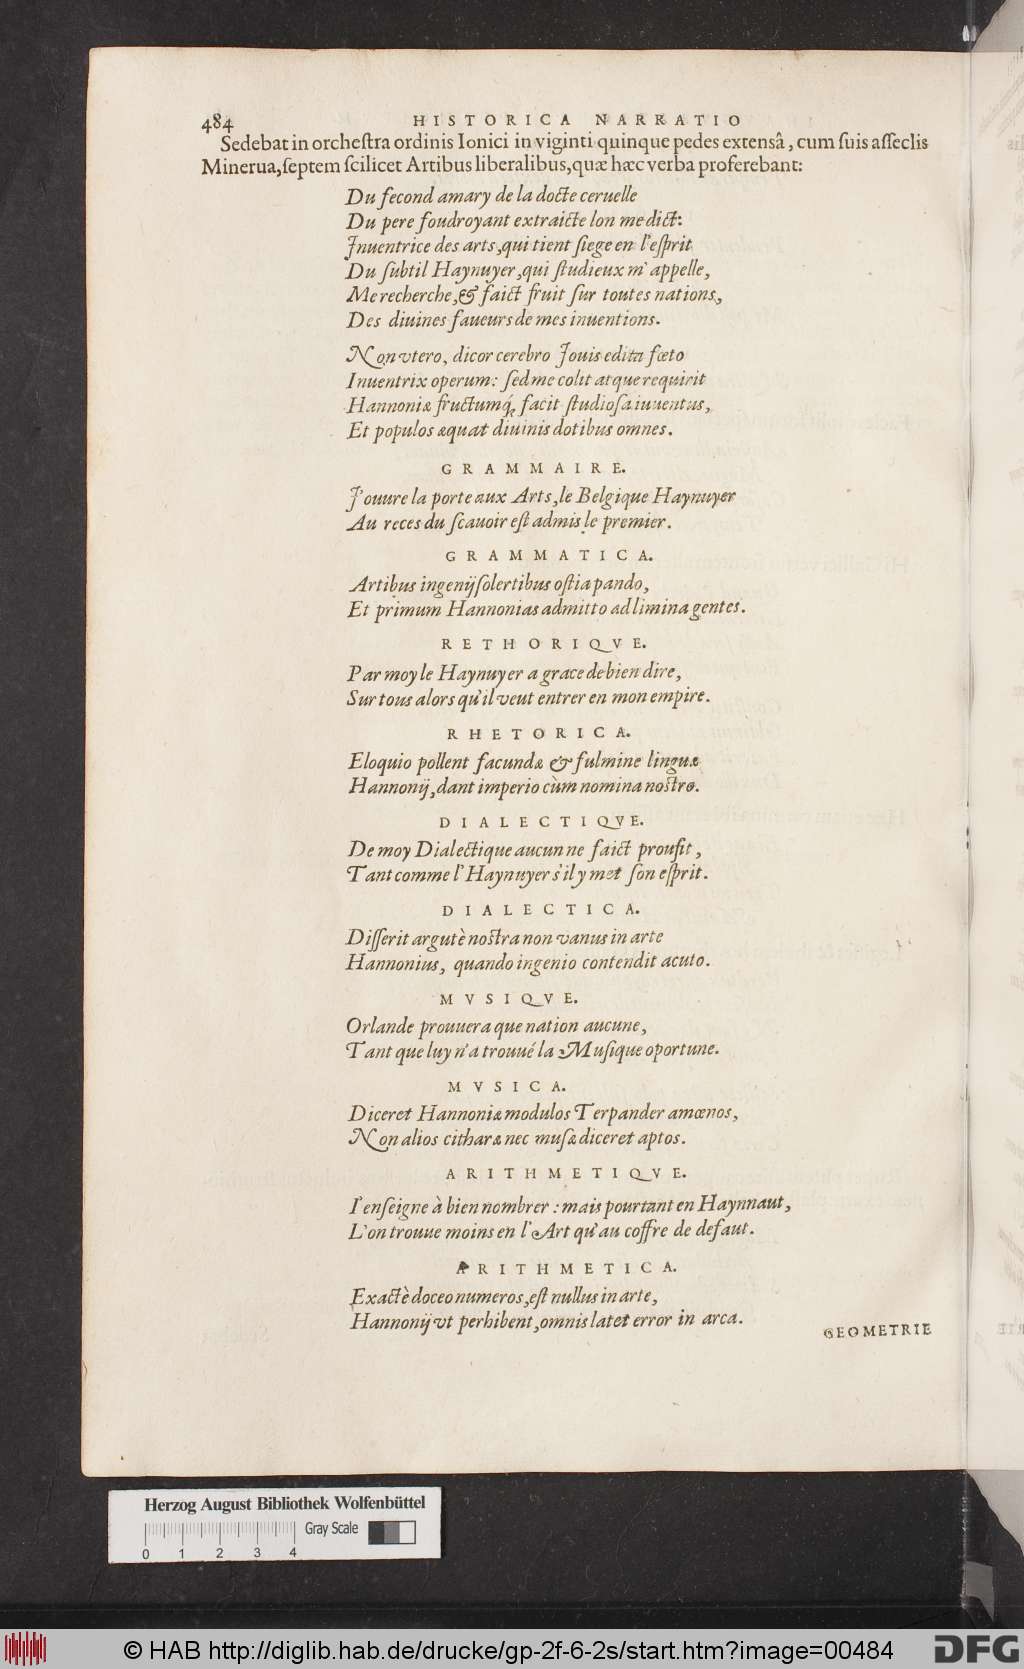 484 HISTORICA NARRATIO
Sedebat in orchestra ordinis Ionici in viginti quinque pedes extensâ, cum suis asseclis
Minerua, septem scilicet Artibus liberalibus, quæ hæc verba proferebant:
Du fecond amary de la docte ceruelle
Du pere foudroyant extraicte lon me dict:
Inuentrice des arts, qui tient siege en l'esprit
Du subtil Haynuyer, qui studieux m'appelle,
Me recherche, & faict fruit sur toutes nations,
Des diuines faueurs de mes inuentions.
Non vtero, dicor cerebro Iouis edita fœto
Inuentrix operum: sed me colit atque requirit
Hannoniæ fructumq́; facit studiosa iuuentus,
Et populos æquat diuinis dotibus omnes.
GRAMMAIRE.
J'ouure la porte aux Arts, le Belgique Haynuyer
Au reces du scauoir est admis le premier.
GRAMMATICA.
Artibus ingenij solertibus ostia pando,
Et primum Hannonias admitto ad limina gentes.
RETHORIQVE.
Par moy le Haynuyer a grace de bien dire,
Sur tous alors qu'il veut entrer en mon empire.
RHETORICA.
Eloquio pollent facundæ & fulmine linguæ
Hannonij, dant imperio cùm nomina nostro.
DIALECTIQVE.
De moy Dialectique aucun ne faict proufit,
Tant comme l'Haynuyer s'il y met son esprit.
DIALECTICA.
Disserit argutè nostra non vanus in arte
Hannonius, quando ingenio contendit acuto.
MVSIQVE.
Orlande prouuera que nation aucune,
Tant que luy n'a trouué la Musique oportune.
MVSICA.
Diceret Hannoniæ modulos Terpander amœnos,
Non alios citharæ nec musæ diceret aptos.
ARITHMETIQVE.
I'enseigne à bien nombrer: mais pourtant en Haynnaut,
L'on trouue moins en l'Art qu'au coffre de defaut.
ARITHMETICA.
Exactè doceo numeros, est nullus in arte,
Hannonij vt perhibent, omnis latet error in arca.
GEOMETRIE
Herzog August Bibliothek Wolfenbüttel
Gray Scale
0 1 2 3 4
© HAB http://diglib.hab.de/drucke/gp-2f-6-2s/start.htm?image=00484
DFG